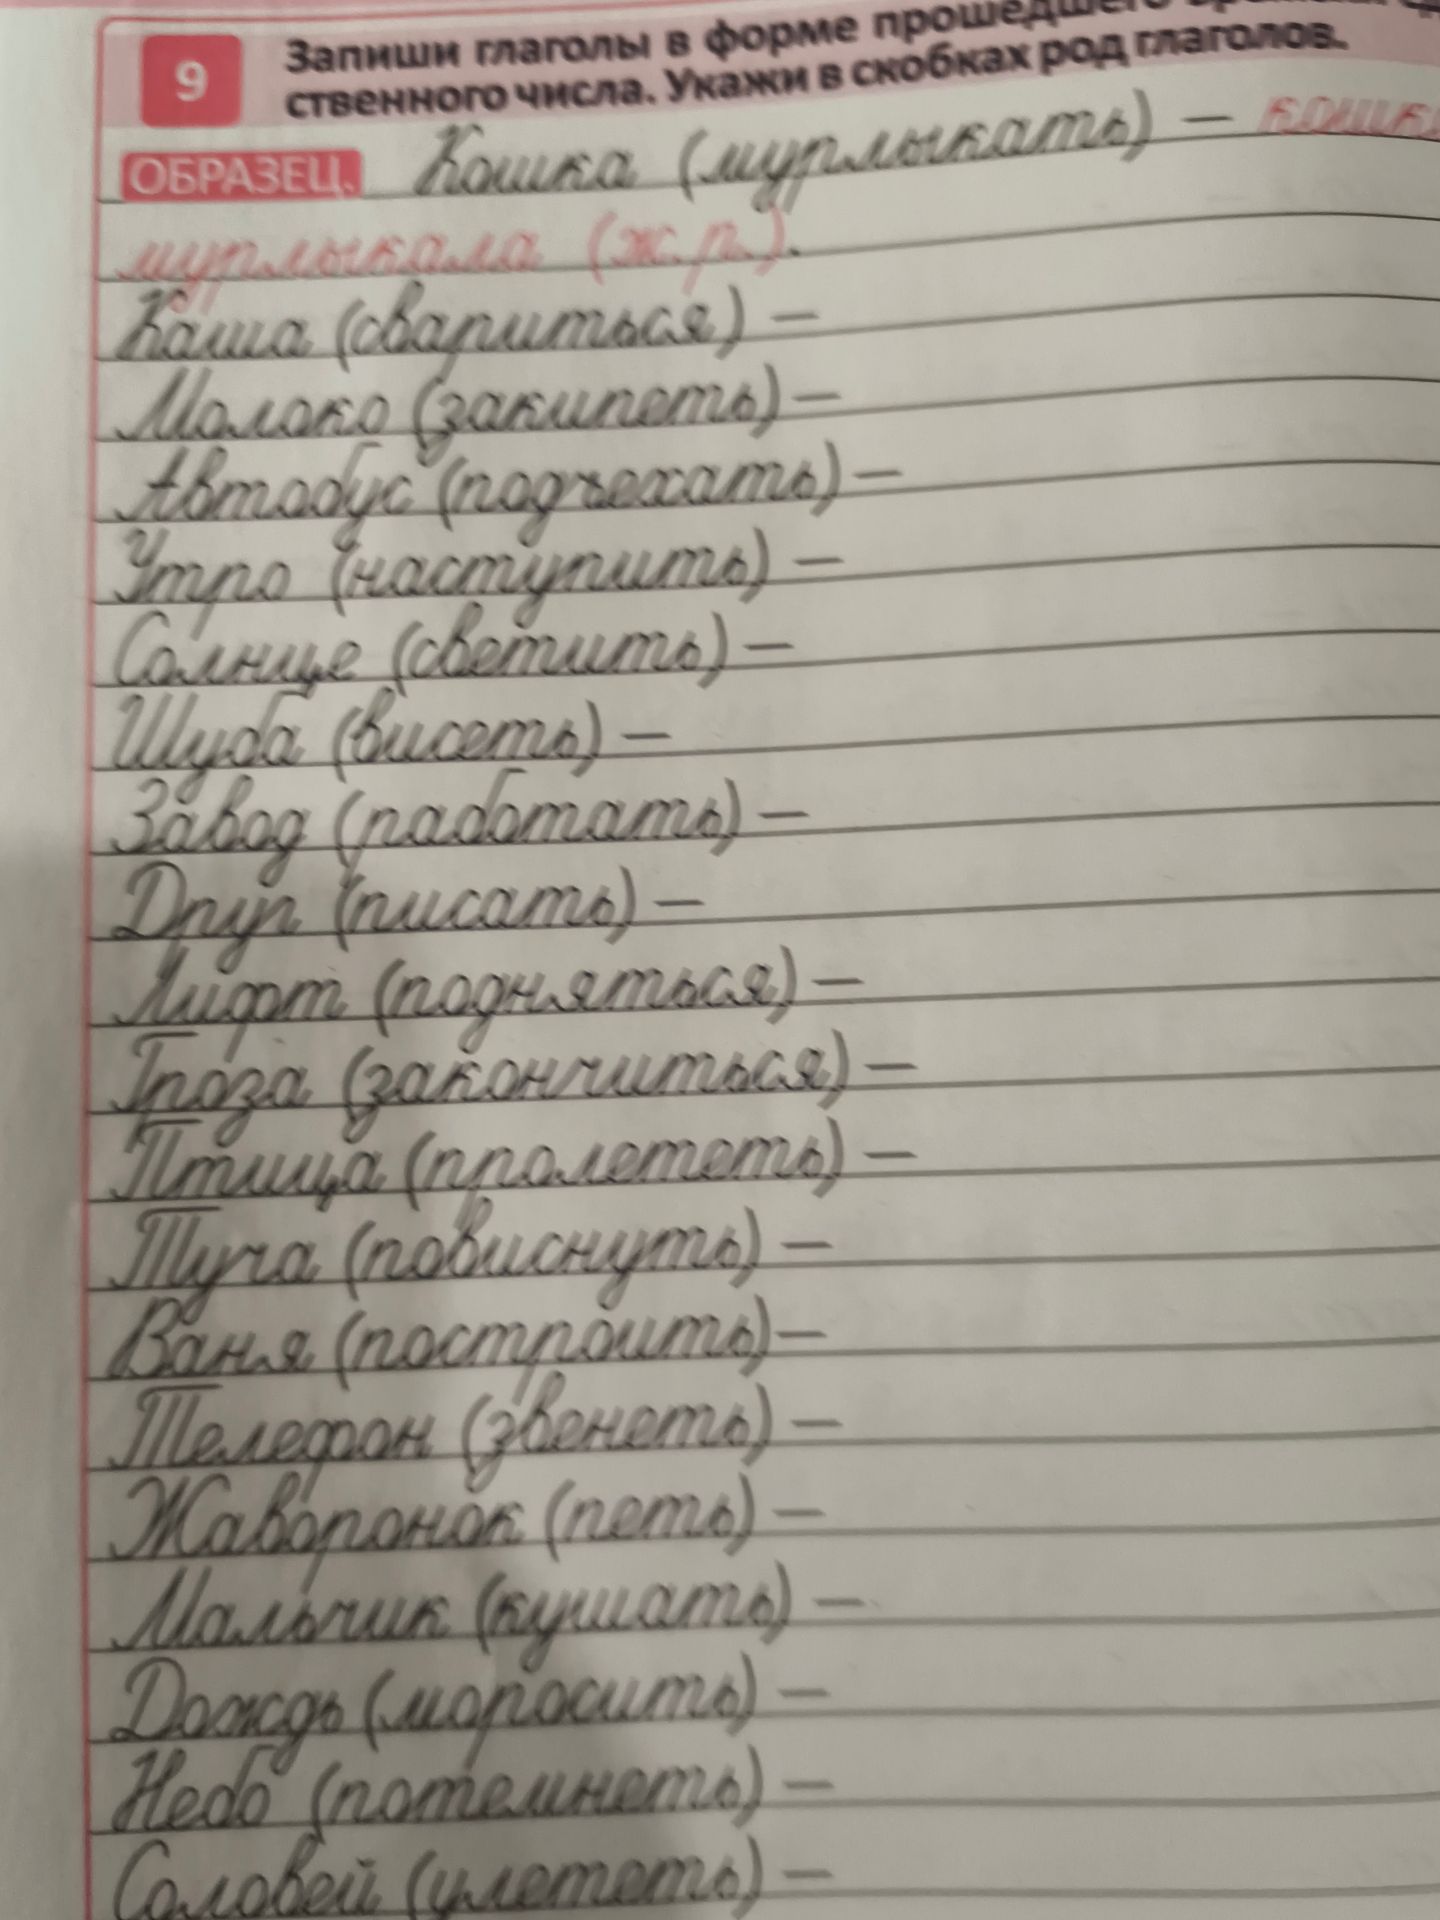 9 Запиши глаголы в форме прошедшего
ственного числа. Укажи в скобках род глаголов.
ОБРАЗЕЦ. Кошка (мурлыкать) –
мурлыкала (ж.р.).
Каша (свариться) –
Молоко (закипеть) –
Автобус (подъехать) –
Утро (наступить) –
Солнце (светить) –
Шуба (висеть) –
Завод (работать) –
Друг (писать) –
Лифт (подняться) –
Гроза (закончиться) –
Птица (пролететь) –
Туча (повиснуть) –
Ваня (построить) –
Телефон (звенеть) –
Жаворонок (петь) –
Мальчик (кушать) –
Дождь (моросить) –
Небо (потемнеть) –
Соловей (улететь) –